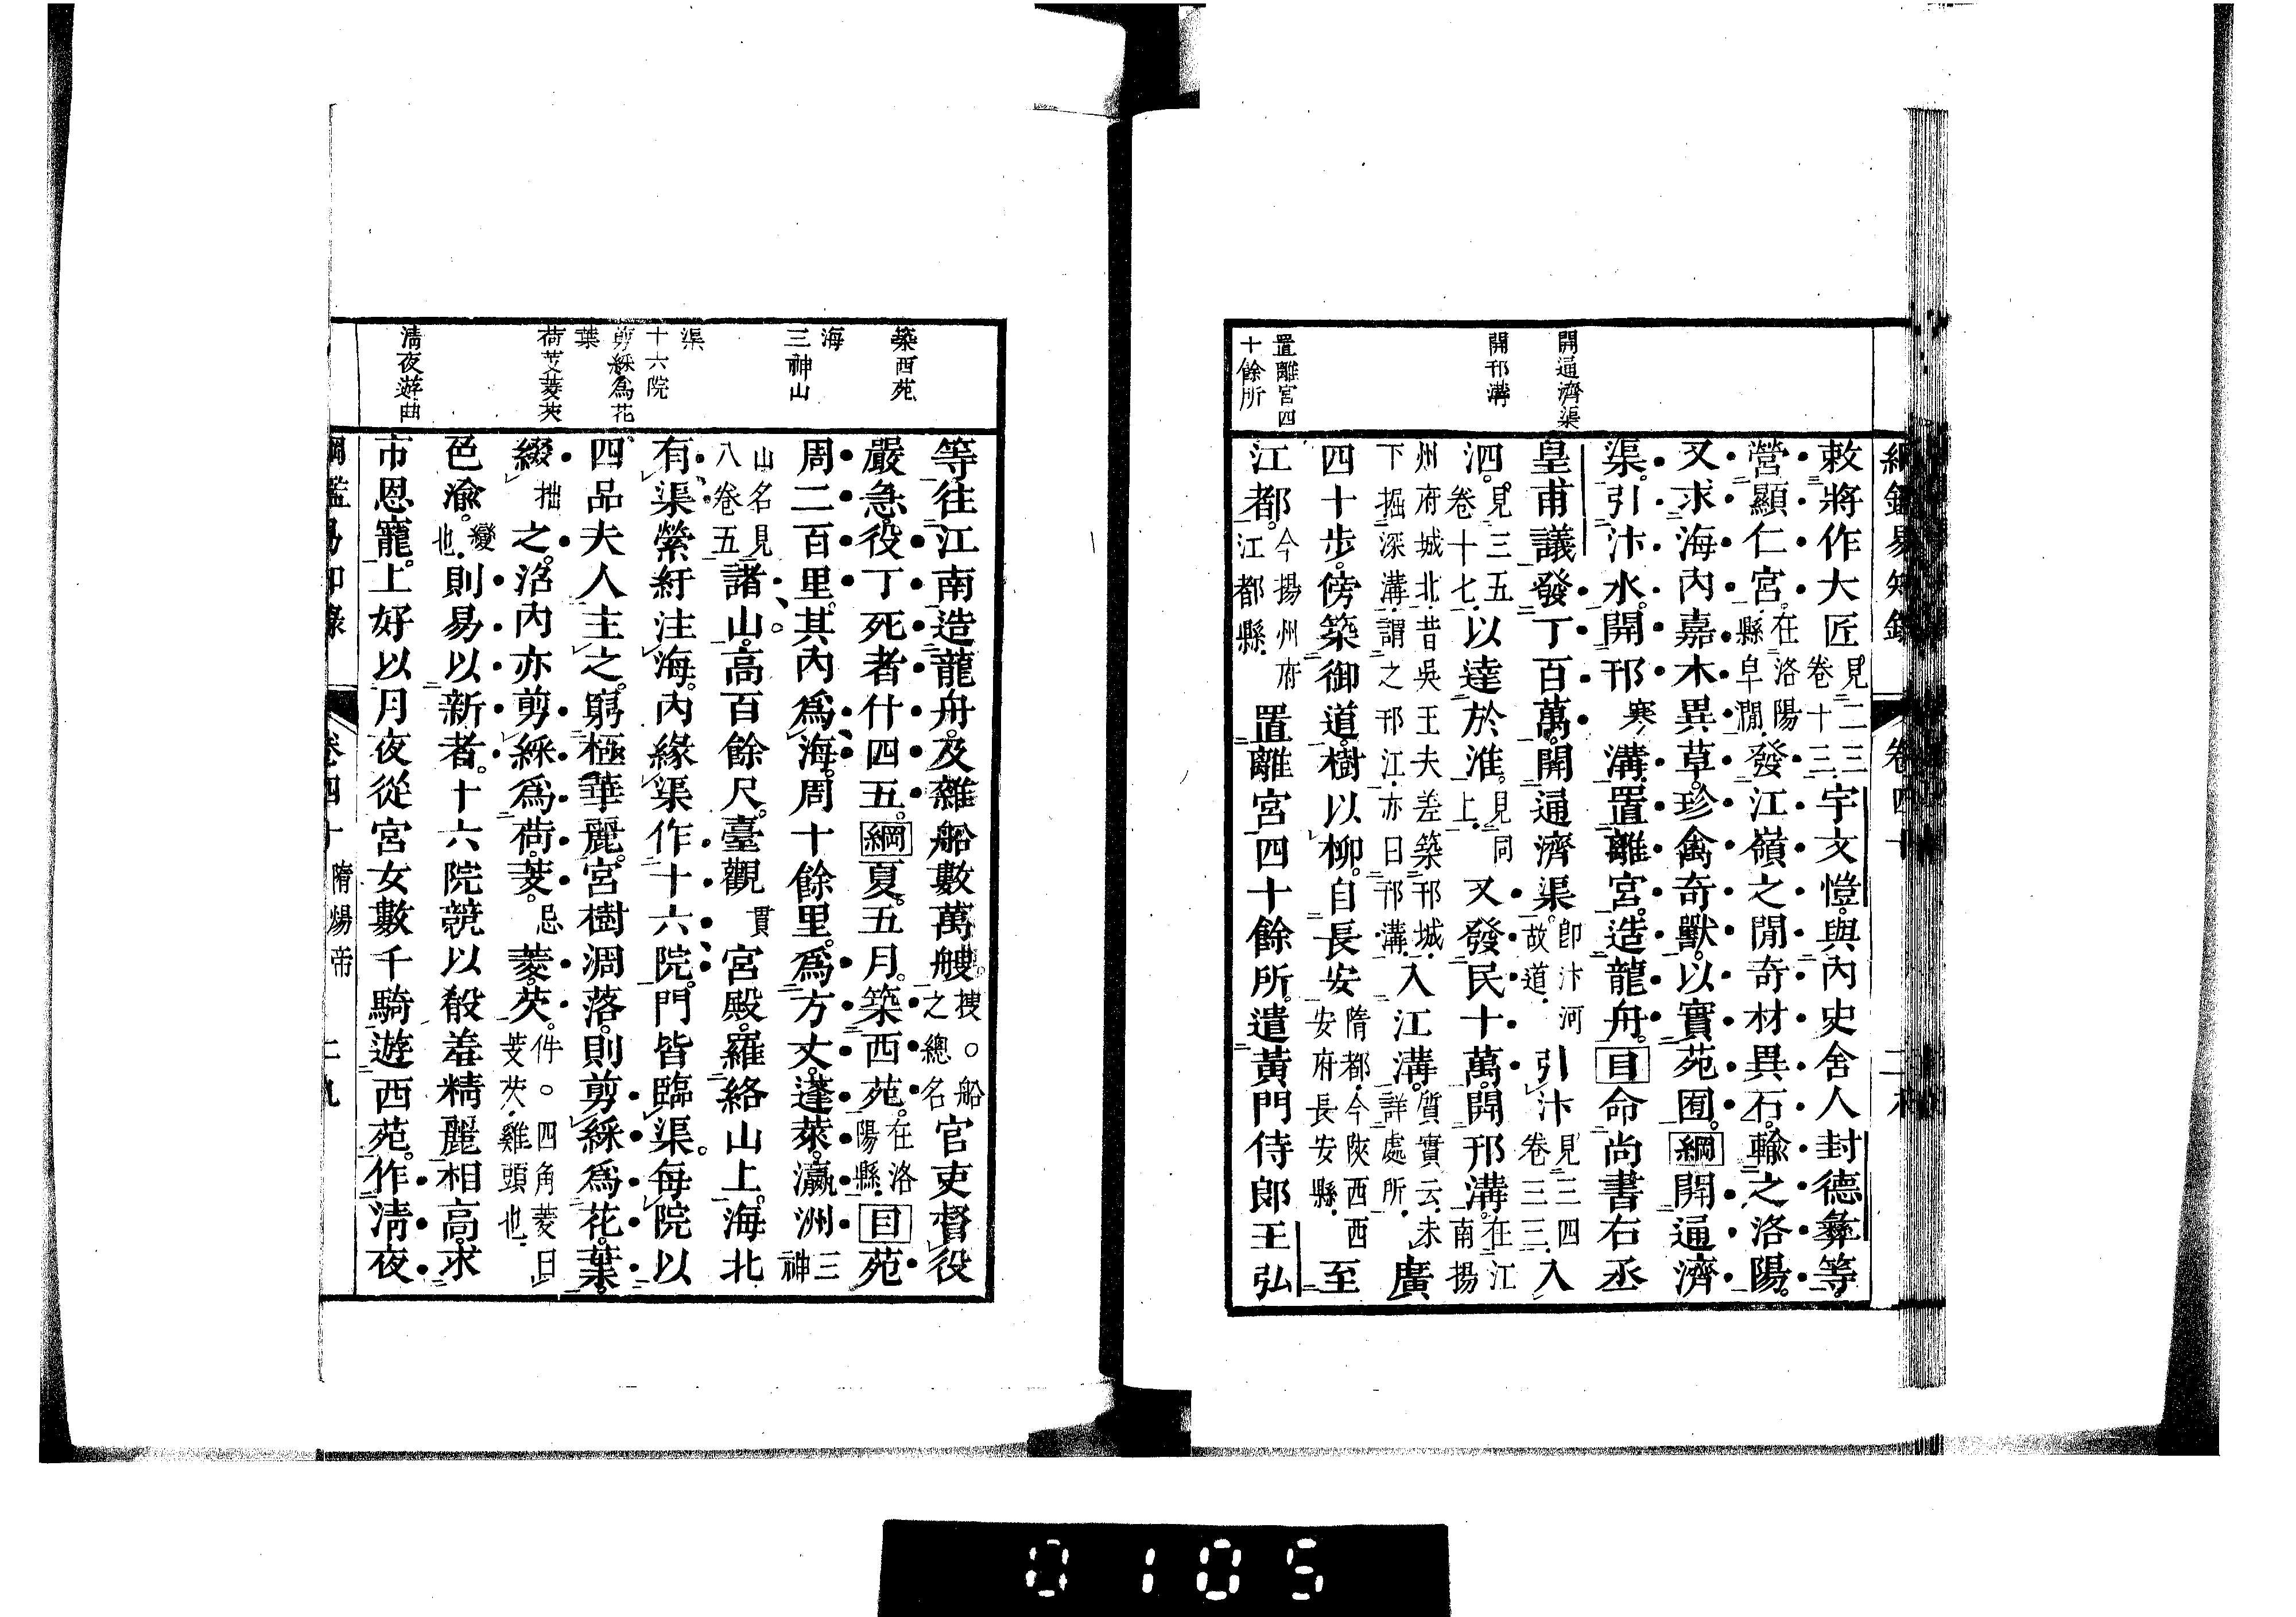 綱鑑易知錄　卷四十
開通濟渠
開邗溝
置離宮四
十餘所
敕將作大匠見二三卷十三宇文愷與內史舍人封德彝等
營顯仁宮在洛陽縣阜澗發江嶺之閒奇材異石輸之洛陽
又求海內嘉木異草珍禽奇獸以實苑囿綱開通濟
渠引汴水開邗寒溝置離宮造龍舟目命尚書右丞
皇甫議發丁百萬開通濟渠卽汴河故道引汴見三四卷三三入
泗見三五卷十七以達於淮見同上又發民十萬開邗溝在江南揚
州府城北昔吳王夫差築邗城城下掘深溝謂之邗江亦曰邗溝入江溝質實云未詳處所廣
四十步傍築御道樹以柳自長安隋都今陝西西安府長安縣至
江都今揚州府江都縣置離宮四十餘所遣黃門侍郎王弘
築西苑
海
三神山
渠
十六院
剪綵爲花
葉
荷芰菱芡
清夜遊曲
等往江南造龍舟及雜船數萬艘搜○船之總名官吏督役
嚴急役丁死者什四五綱夏五月築西苑在洛陽縣目苑
周二百里其內爲海周十餘里爲方丈蓬萊瀛洲三神
山名見八卷五諸山高百餘尺臺觀貫宮殿羅絡山上海北
有渠縈紆注海內緣渠作十六院門皆臨渠每院以
四品夫人主之窮極華麗宮樹凋落則剪綵爲花葉
綴拙之沼內亦剪綵爲荷芰忌菱芡件○四角菱曰芰芡雞頭也
色渝變也則易以新者十六院競以殽羞精麗相高求
市恩寵上好以月夜從宮女數千騎遊西苑作淸夜
綱鑑易知錄　卷四十　隋煬帝　二九
0105